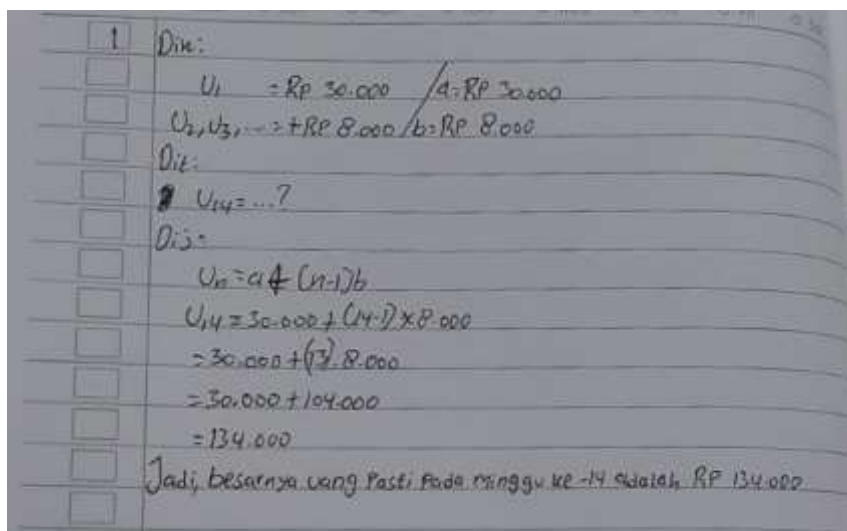 1 Din:
U1 = Rp 30.000 / a = RP 30.000
U2, U3, ... = + RP 8.000 / b = RP 8.000
Dit:
U14 = ...?
Dij:
Un = a + (n-1)b
U14 = 30.000 + (14-1) × 8.000
= 30.000 + (13). 8.000
= 30.000 + 104.000
= 134.000
Jadi, besarnya uang Pasti Pada minggu ke -14 adalah RP 134.000